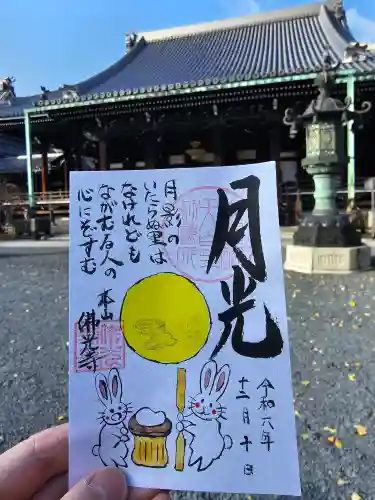 月光
月影の
いたらぬ里は
なけれども
ながむる人の
心にぞすむ
本山
佛光寺
令和六年
十二月十日